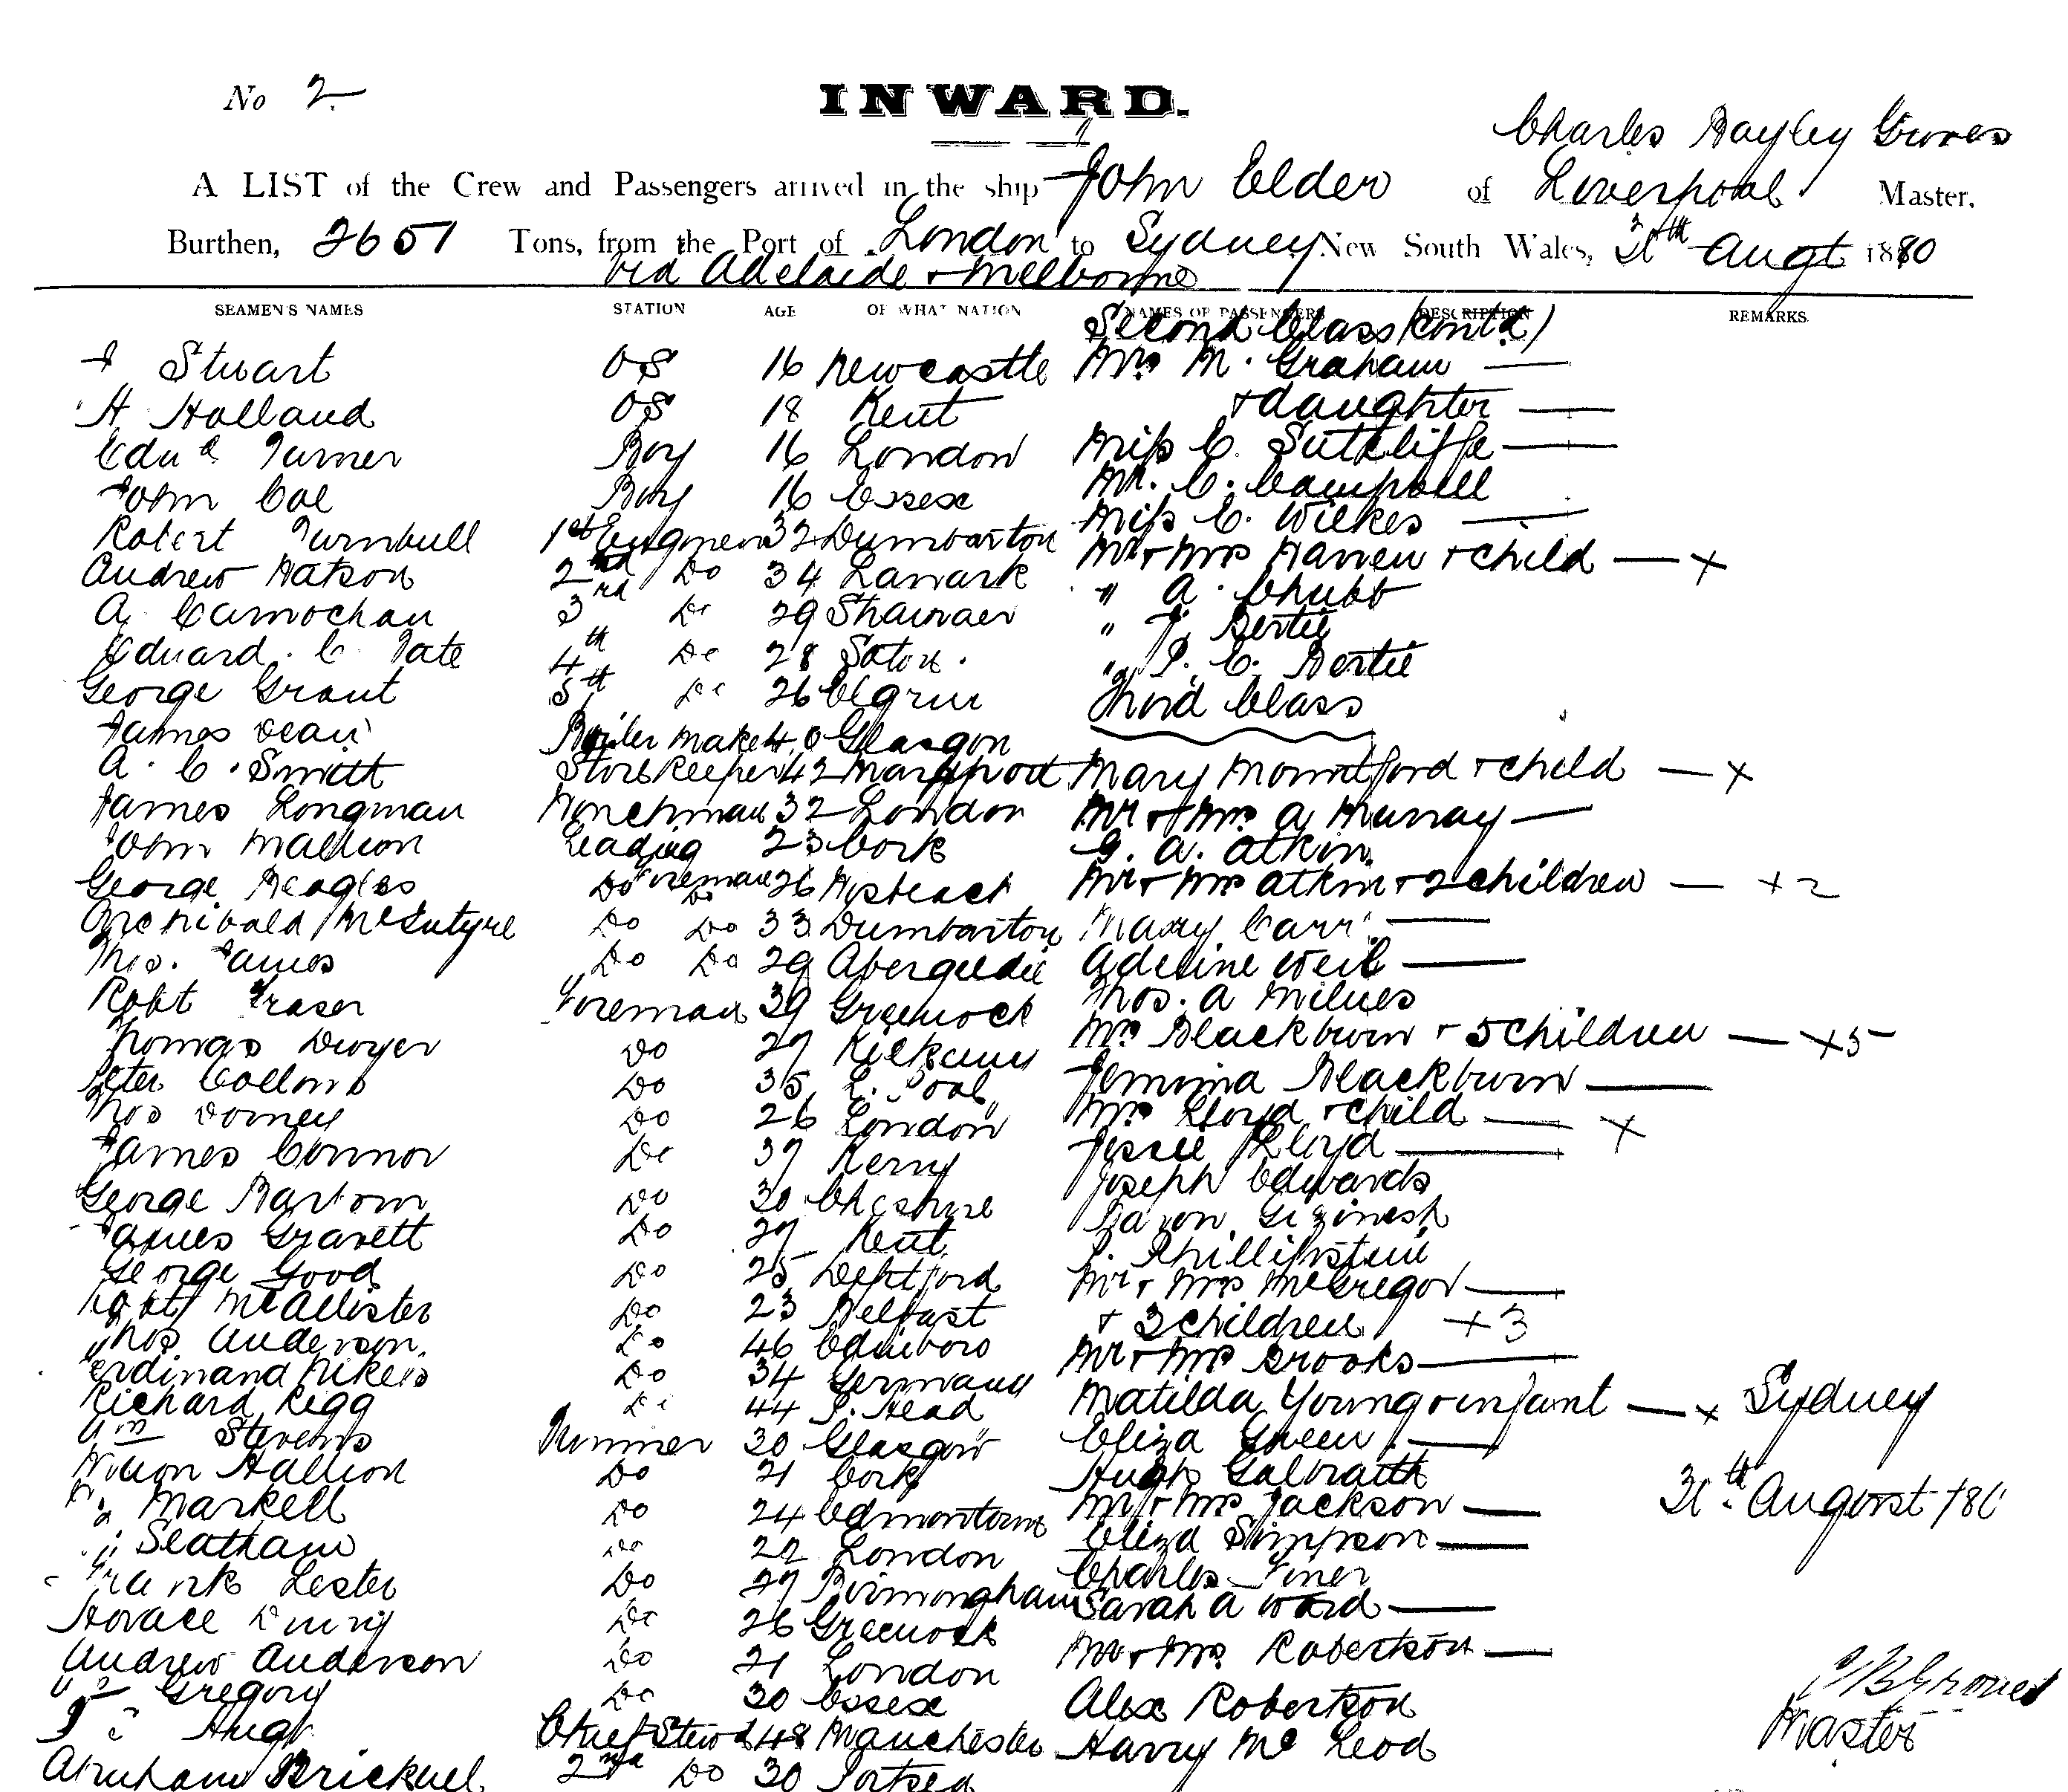 No 2.
INWARD.
Charles Bayley Groves
A LIST of the Crew and Passengers arrived in the ship John Elder of Liverpool Master,
Burthen, 2651 Tons, from the Port of London to Sydney New South Wales, 31th Augt 1880
via Adelaide & Melborne
SEAMEN'S NAMES STATION AGE OF WHAT NATION NAMES OF PASSENGERS DESCRIPTION REMARKS.
Second Class (contd)
J Stuart OS 16 Newcastle Mrs M. Graham —
H Holland OS 18 Kent & daughter —
Edwd Turner Boy 16 London Miss C. Sutcliffe —
John Coe Boy 16 Essex Mr. C. Campbell
Robert Turnbull 1st Engineer 32 Dumbarton Miss C. Wilkes —
Andrew Watson 2nd Do 34 Lanark Mr & Mrs Warren & child — x
A. Carnochan 3rd Do 29 Stranraer " A. Chubb
Edward. C. Tate 4th Do 28 " J. Bertie
George Grant 5th Do 26 Elgin " P. C. Bertie
James Dean Boiler maker 40 Glasgow Third Class
A. C. Smitt Storekeeper 42 Maryport Mary Mountford & child — x
James Longman Winchman 32 London Mr & Mrs A Murray —
John Mallion Leading 23 Cork G. A. Atkin
George Beagles Do Foreman 26 Wisbeach Mr & Mrs Atkin & 2 children — x 2
Archibald McIntyre Do Do 33 Dumbarton Mary Carr —
Thos. James Do Do 29 Abergeldie Adeline Weil —
Robt Fraser Foreman 39 Greenock Thos. A Milnes
Thomas Dwyer Do 27 Kilkenny Mrs Blackburn & 5 children — x5
Peter Collins Do 35 L. Pool Jemima Blackburn —
Thos Dorney Do 26 London Mrs Lloyd & child — x
James Connor Do 37 Kerry Jessie Lloyd —
George Barton Do 30 Cheshire Joseph Edwards
James Gravett Do 27 Kent
George Good Do 25 Deptford
Robt McAllister Do 23 Belfast Mr & Mrs McGregor —
Thos Anderson. Do 46 Edinboro & 3 children x 3
Ferdinand Do 34 Germany Mr & Mrs Brooks —
Richard Rigg Do 44 P. Head Matilda Young & infant — x Sydney
Wm Stevens Trimmer 30 Glasgow Eliza Green —
Hallion Do 21 Cork Hugh Galbraith
Markell Do 24 Edmontown Mr & Mrs Jackson — 31th August /80
Do 22 London Eliza Simpson —
Frank Lester Do 27 Birmingham Charles Finer
Horace Do 26 Greenock Sarah A Ward —
Andrew Anderson Do 21 London Mr & Mrs Robertson —
Gregory Do 30 Essex Alex Robertson
Chief Stewd 48 Manchester Harry McLeod
Abraham 2nd Do 30 Portsea
C B Groves
Master